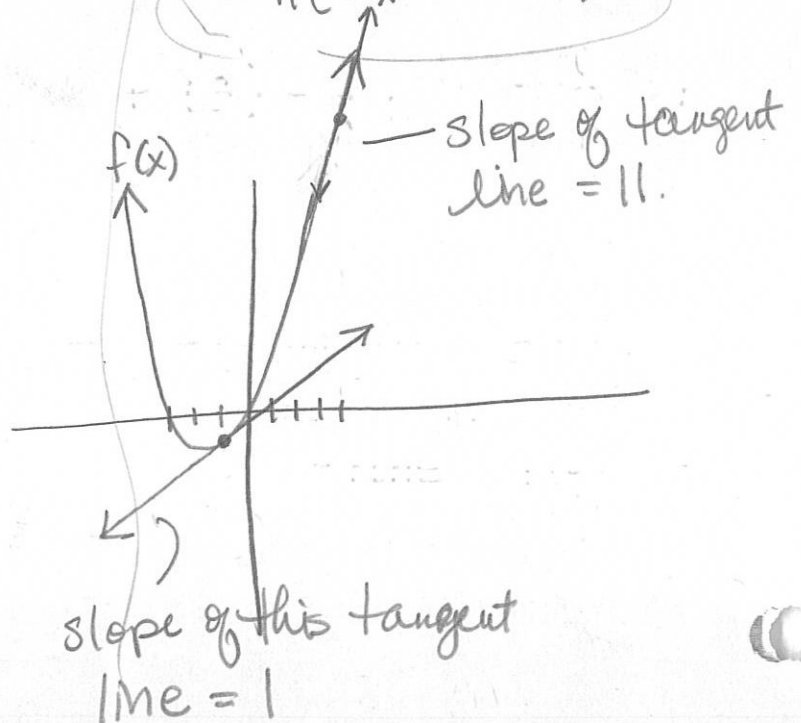 f(x)
slope of tangent
line = 11.
slope of this tangent
line = 1